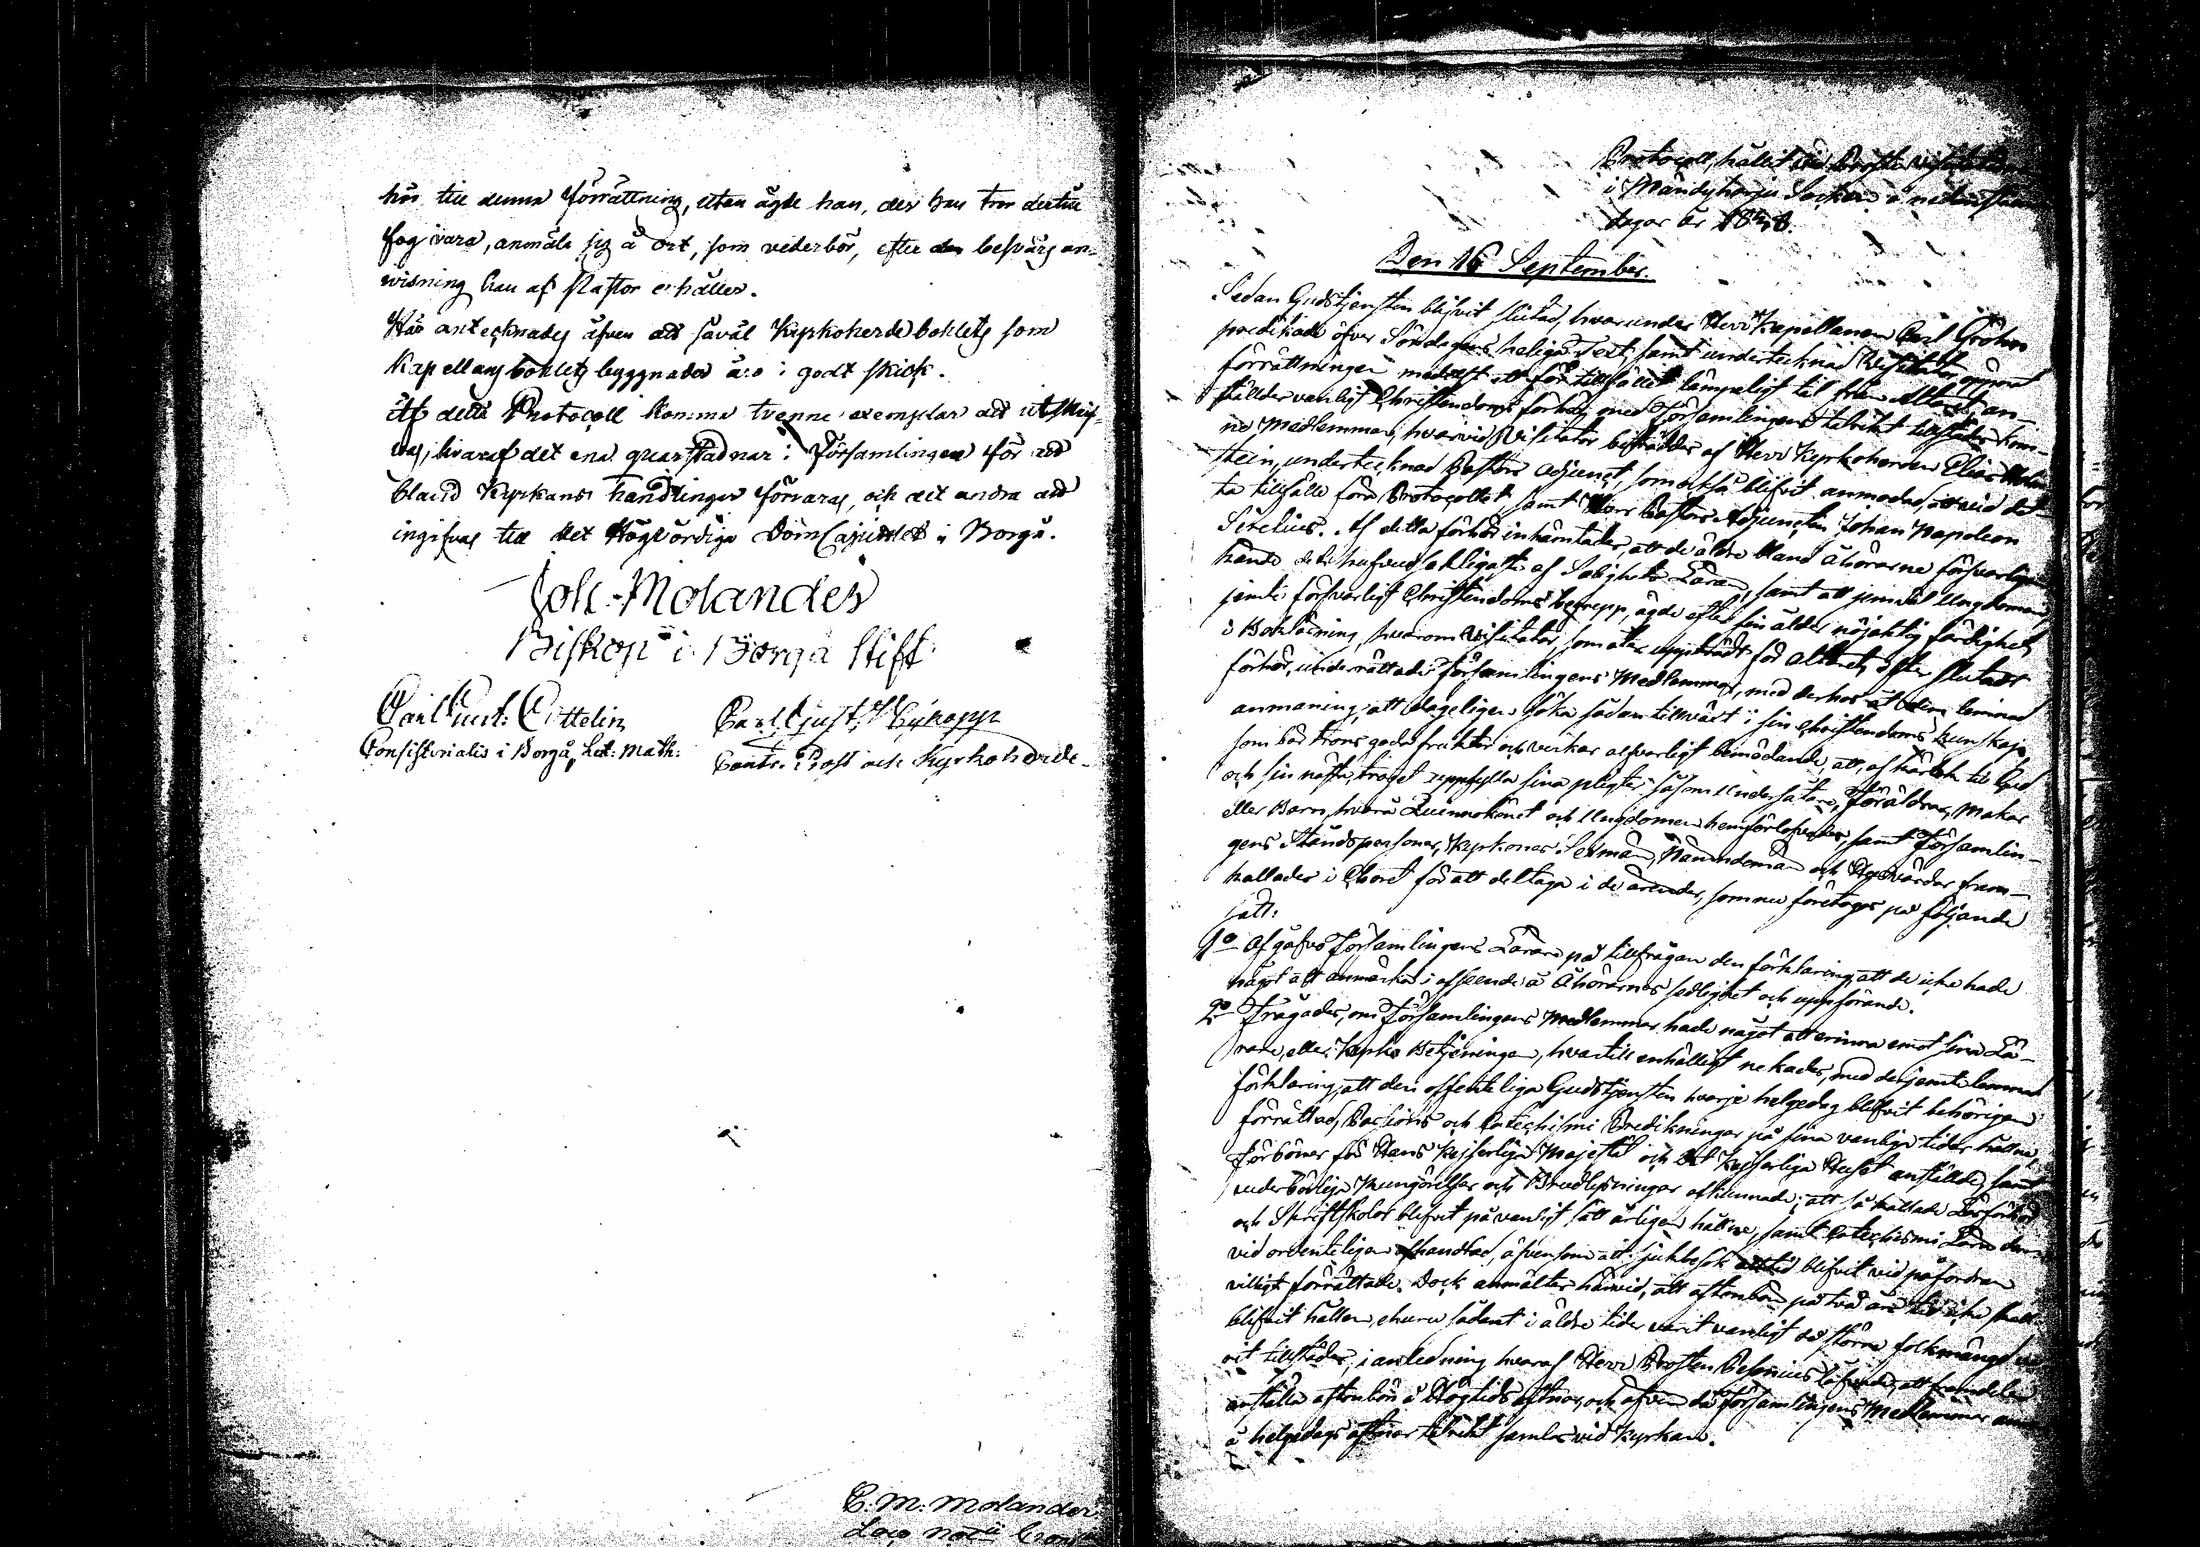 hör till denna förrättning, utan ägde han, der han tror dertill
fog vara, anmäla sig å ort, som vederbör, efter den besvärs an-
visning han af Pastor erhåller.
Här antecknades äfven att såväl Kyrkoherdebohlets som
Kapellansbohlets byggnader äro i godt skick.
Af detta Protocoll komma tvenne exemplar att utskrif-
vas, hvaraf det ena quarstadnar i Församlingen för att
bland Kyrkans handlingar förvaras, och det andra att
ingifvas till det Högvördiga DomCapitlet i Borgå.
Joh. Molander
Biskop i Borgå Stift
Carl Gust. Ottelin
Carl Gust.
Consistorialis i Borgå, Lect. Math:
Contr. Prost och Kyrkoherde.
C. M. Molander.
Protocoll, hållet vid Prostevisitation
i Mändyharju Socken å nedanstående
dagar år
Den 16 September.
Sedan Gudstjensten blifvit slutad, hvarunder Herr Kapellanen Carl Gröhn
predikade öfver Söndagens heliga Text, samt undertecknad Visitator öppnat
förrättningen medelst ett för tillfället lämpeligt tal från Altaret, an-
ställdes vanligt Christendoms förhör med Församlingens talrikt tillstädes kom-
ne Medlemmar, hvarvid Visitator biträddes af Herr Kyrkoherden Elias
stein, undertecknad Pastors Adjunct, som också blifvit anmodad att vid det-
ta tillfälle föra Protocollet samt Herr Pastors Adjuncten Johan Napoleon
Sirelius. Af detta förhör inhämtades, att de äldre bland åhörarne försvarligen
kände det hufvudsakligaste af Salighets Läran, samt att jemväl Ungdomen,
jemte försvarligt Christendoms begrepp, ägde efter sin ålder nöjaktig färdighet
i Bokläsning, hvarom Visitator, som åter uppträdt för Altaret, efter slutadt
förhör, underrättade Församlingens Medlemmar, med derhos lemnad
anmaning, att dageligen söka sådan tillväxt i sin Christendoms kunskap,
som bär trons goda frukter och verkar alfvarligt bemödande, att, af kärlek till Gud
och sin nästa, troget uppfylla sina pligter såsom Undersåtare, Föräldrar, Makar
eller Barn, hvarå Quinnokönet och Ungdomen hemförlofvades, samt Församlin-
gens Ståndspersoner, Kyrkones Sexmän, Nämndemän och Rotevärdar fram-
kallades i Choret för att deltaga i de ärender, som nu företogos på följande
sätt:
1o Afgåfvo Församlingens Lärare på tillfrågan den förklaring, att de icke hade
något att anmärka i afseende å Åhörarnes sedlighet och uppförande.
2o Frågades, om Församlingens Medlemmar hade något att erinra emot sina Lä-
rare, eller Kyrko Betjeningen, hvartill enhälligt nekades, med derjemte lemnad
förklaring, att den offenteliga Gudstjensten hvarje helgedag blifvit behörigen
förrättad, Passions och Catechismi Predikningar på sina vanliga tider hållne,
Förböner för Hans Kejserliga Majestät och Det Kejserliga Huset anställde, samt
vederbörliga Kungörelser och Brudlysningar afkunnade; att så kallade Läseförhör
och Skriftskolor blifvit på vanligt sätt årligen hållne, samt Catechismi Läran der-
vid ordenteligen afhandlad, äfvensom att sjukbesök alltid blifvit vid påfordran
villigt förrättade. Dock anmältes härvid, att aftonbön på två års tid icke skall
blifvit hållen, ehuru sådant i äldre tider varit vanligt då större folkmängd va-
rit tillstädes, i anledning hvaraf Herr Prosten lofvade, att framdeles
anställa aftonbön å Högtids aftnar, och äfven då Församlingens Medlemmar
å helgedags aftnar talrikt samlas vid Kyrkan.